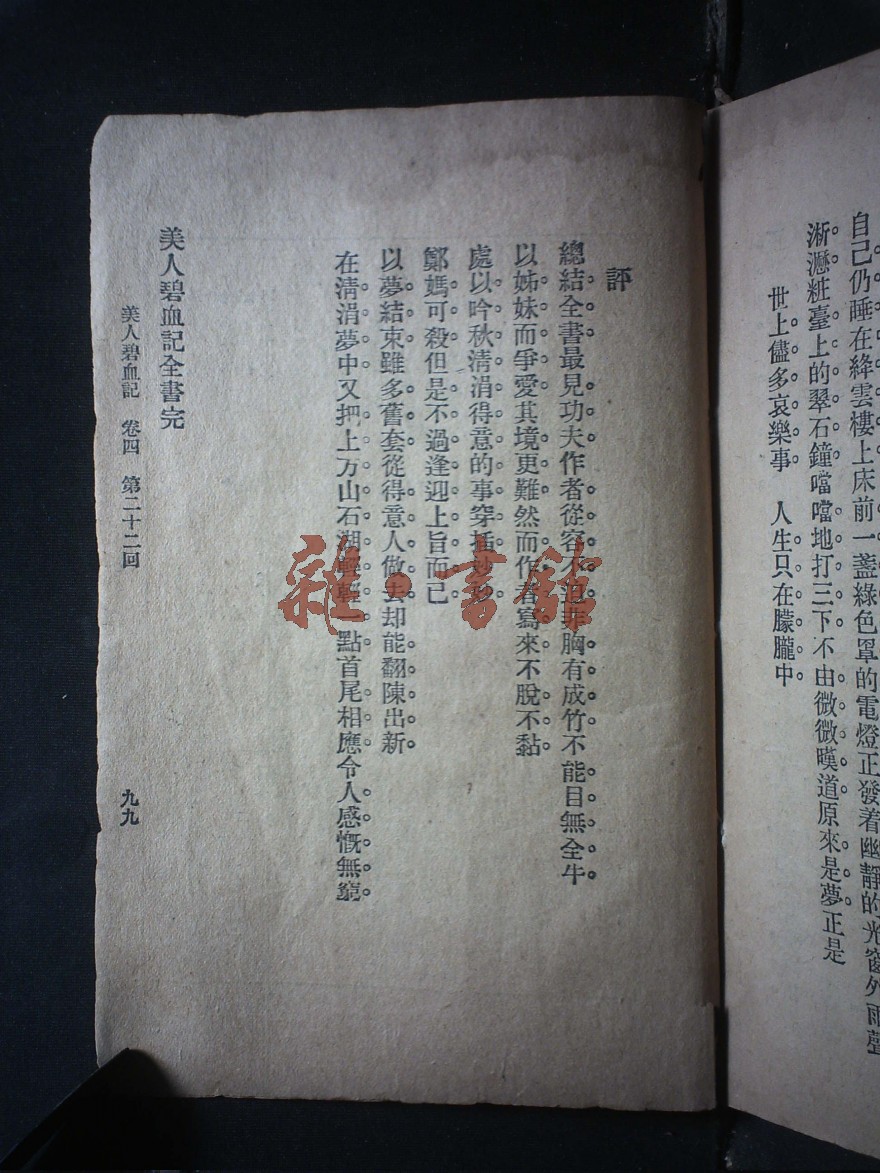 自己仍睡在絳雲樓上床前一盞綠色罩的電燈正發着幽靜的光窗外雨聲
淅瀝粧臺上的翠石鐘噹噹地打三下不由微微嘆道原來是夢正是
世上儘多哀樂事 人生只在朦朧中
評
總結全書最見功夫作者從容不迫非胸有成竹不能目無全牛
以姊妹而爭愛其境更難然而作者寫來不脫不黏
處以吟秋清涓得意的事穿插
鄭媽可殺但是不過逢迎上旨而已
以夢結束雖多舊套從得意人做去却能翻陳出新
在清涓夢中又把上方山石湖輕輕一點首尾相應令人感慨無窮
美人碧血記全書完
美人碧血記 卷四 第二十二回
九九
雜·書館